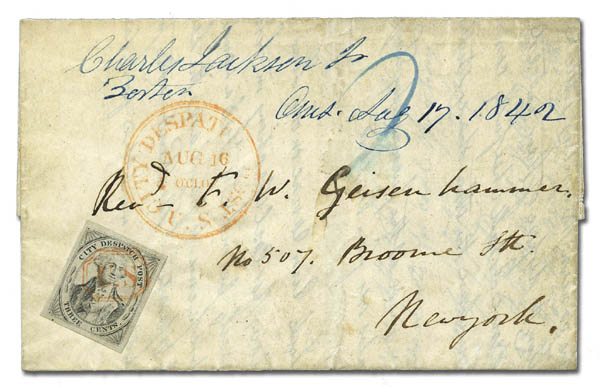 Charles Jackson Jr
Boston
Ans. Aug 17. 1842
2
CITY DESPATCH
AUG 16
O'CLO
U.S.
Revd F. W. Geisenhammer.
No 507. Broome Str.
New york.
CITY DESPATCH POST
U.S
THREE CENTS